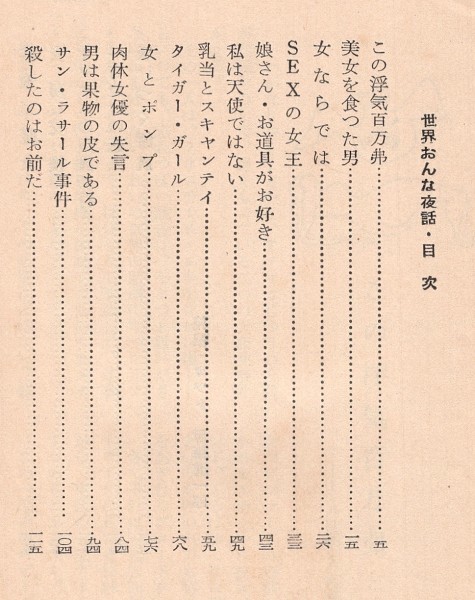 世界おんな夜話・目次
この浮気百万弗……………………五
美女を食つた男……………………一五
女ならでは……………………二六
SEXの女王……………………三三
娘さん・お道具がお好き……………………四三
私は天使ではない……………………四九
乳当とスキヤンテイ……………………五九
タイガー・ガール……………………六八
女とポンプ……………………七六
肉体女優の失言……………………八四
男は果物の皮である……………………九四
サン・ラサール事件……………………一〇四
殺したのはお前だ……………………一一五